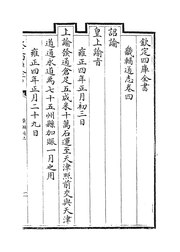 欽定四庫全書
畿輔通志卷四
詔諭
皇上諭旨
雍正四年正月初三日
上諭飭通倉足五成米十萬石運至天津縣前交與天津
道通水道為七十五州縣加賑一月之用
雍正四年正月二十九日